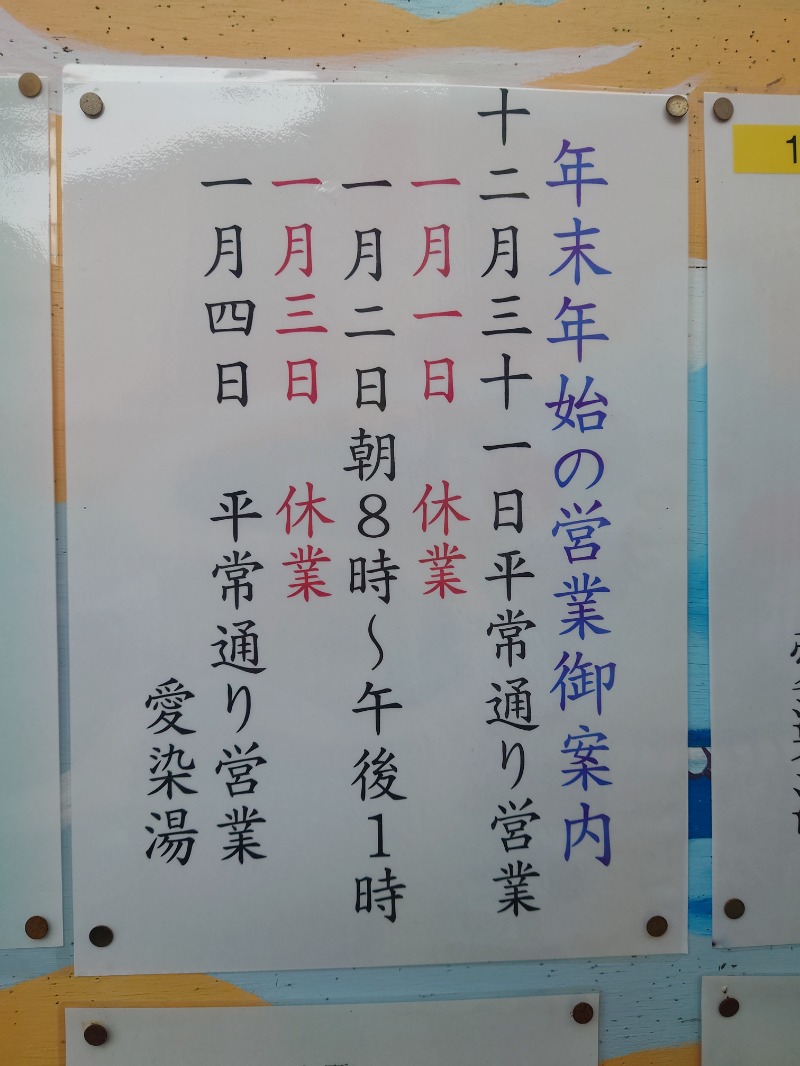 年末年始の営業御案内
十二月三十一日平常通り営業
一月一日 休業
一月二日朝８時～午後１時
一月三日 休業
一月四日 平常通り営業
愛染湯
1